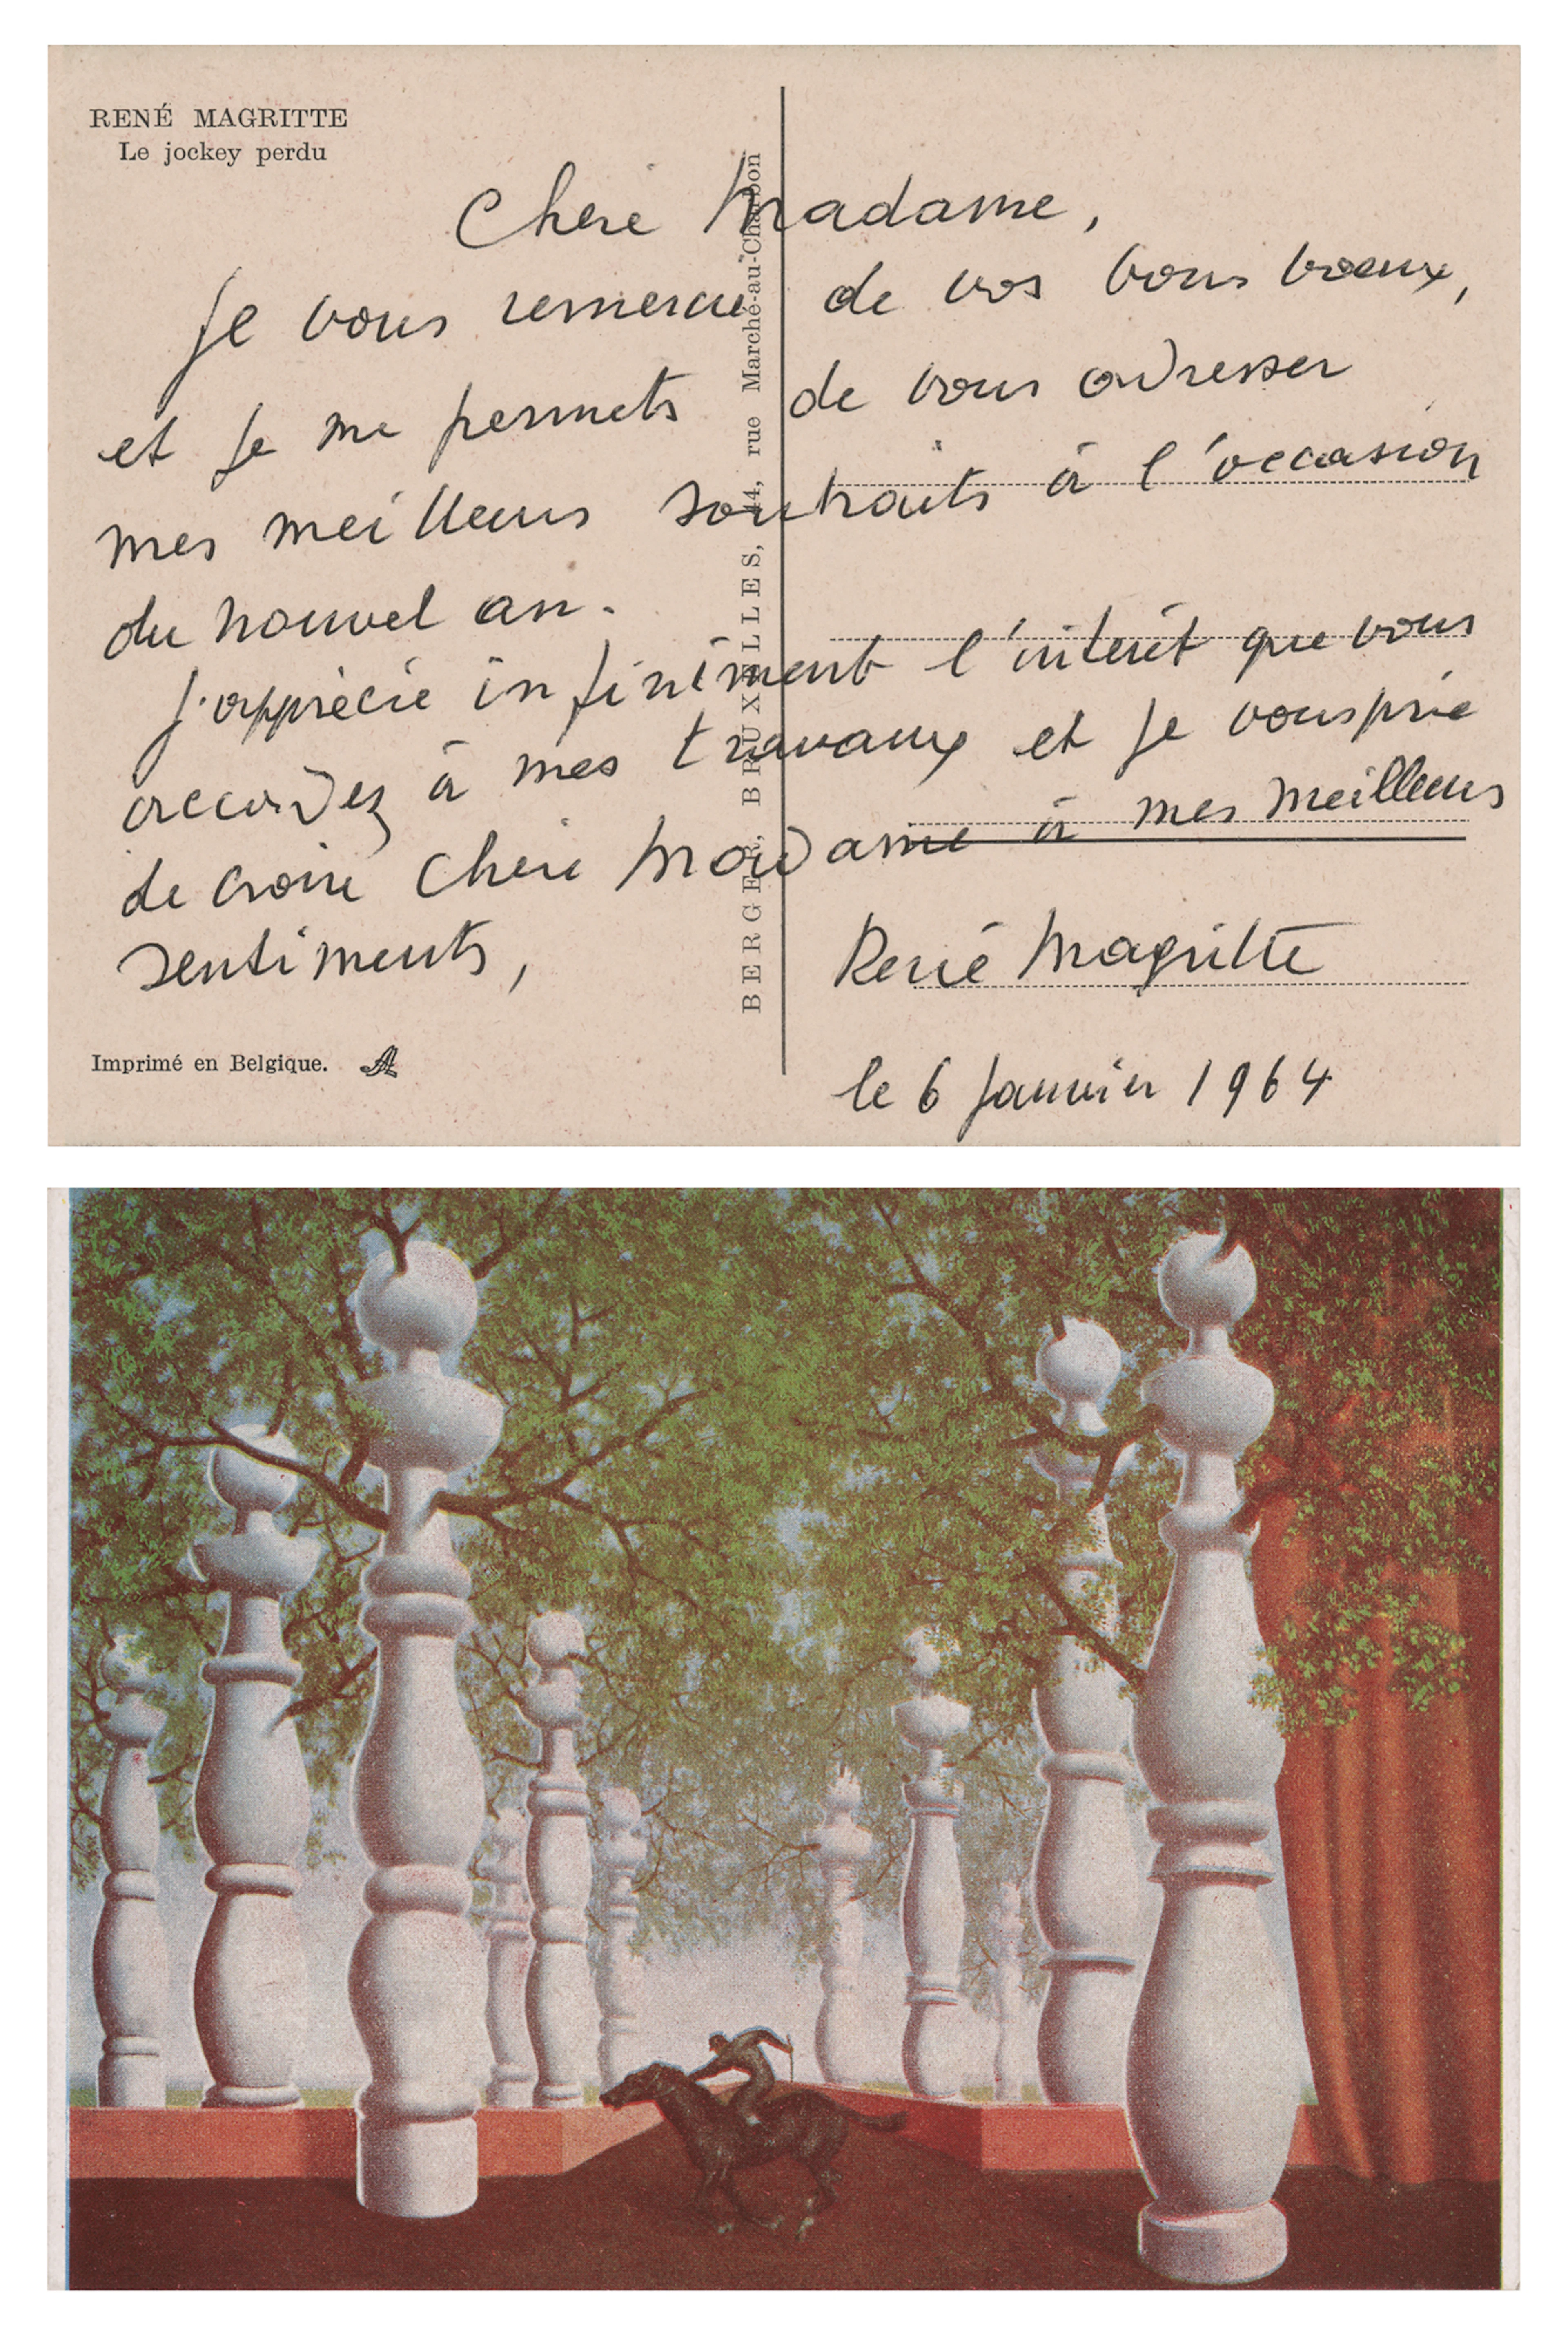 RENÉ MAGRITTE
Le jockey perdu
Chère Madame,
je vous remercie de vos bons vœux,
et je me permets de vous adresser
mes meilleurs souhaits à l'occasion
du nouvel an.
J'apprécie infiniment l'intérêt que vous
accordez à mes travaux et je vous prie
de croire Chère Madame à mes meilleurs
sentiments,
René Magritte
le 6 Janvier 1964
BERGER, BRUXELLES, 44, rue Marché-au-Charbon
Imprimé en Belgique.